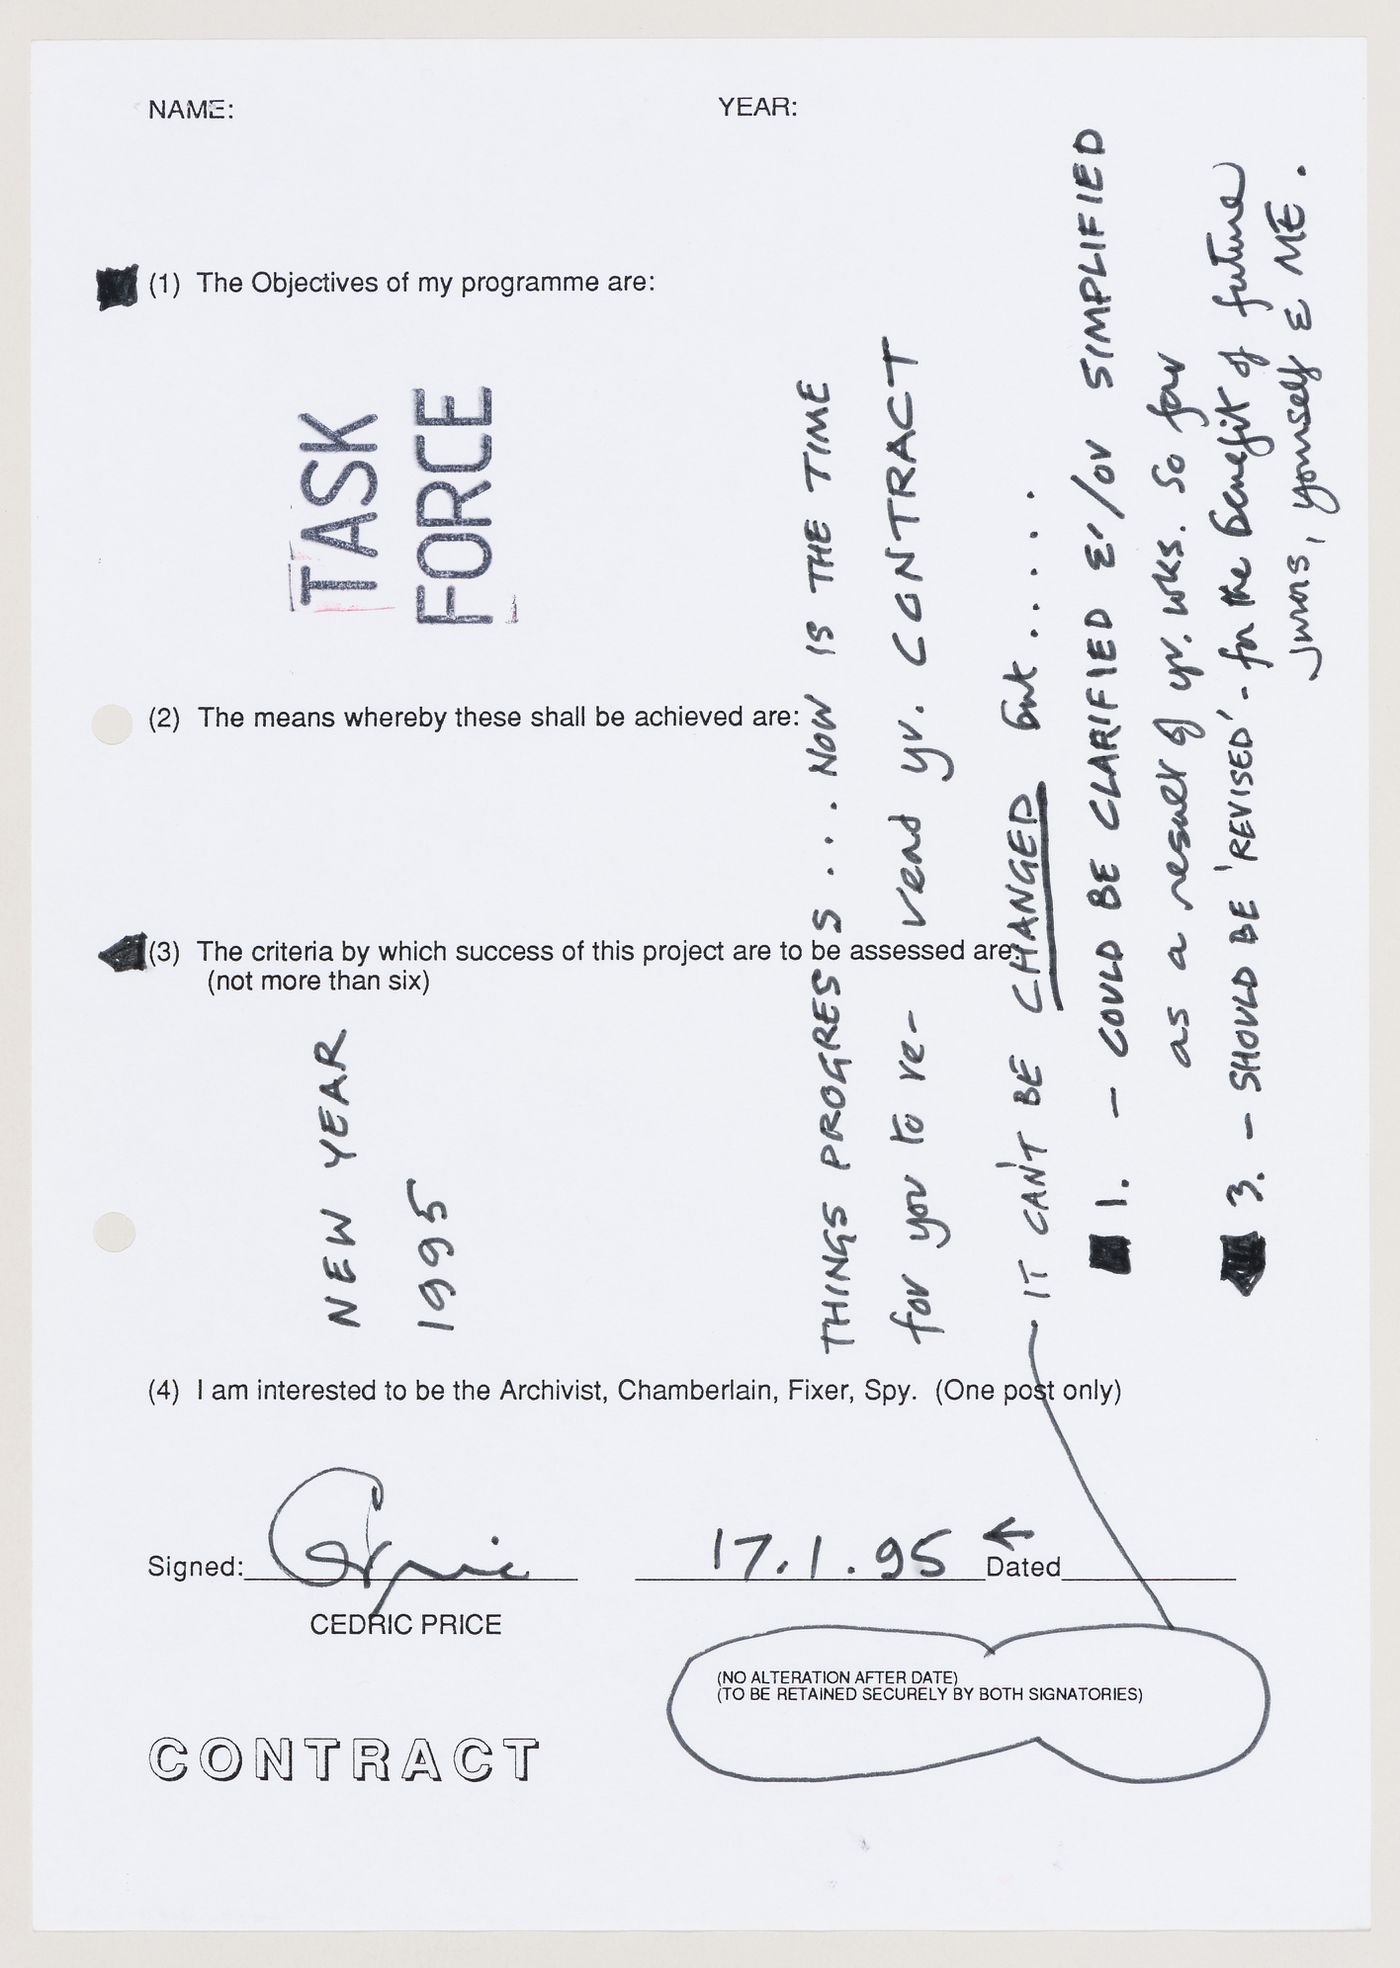 NAME:
YEAR:
(1) The Objectives of my programme are:
TASK
FORCE
(2) The means whereby these shall be achieved are:
(3) The criteria by which success of this project are to be assessed are:
(not more than six)
NEW YEAR
1995
THINGS PROGRES S ... NOW IS THE TIME
for you to re- read yr. CONTRACT
IT CAN'T BE CHANGED but.....
1. - COULD BE CLARIFIED &'/or SIMPLIFIED
as a result of yr. wks. so far
3. - SHOULD BE 'REVISED' - for the benefit of future
jurors, yourself & ME.
(4) I am interested to be the Archivist, Chamberlain, Fixer, Spy. (One post only)
Signed: CPrice
17.1.95 ← Dated
CEDRIC PRICE
(NO ALTERATION AFTER DATE)
(TO BE RETAINED SECURELY BY BOTH SIGNATORIES)
CONTRACT